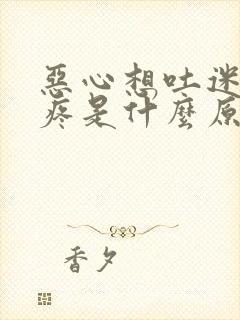 惡心想吐迷
疼是什麼原
香夕